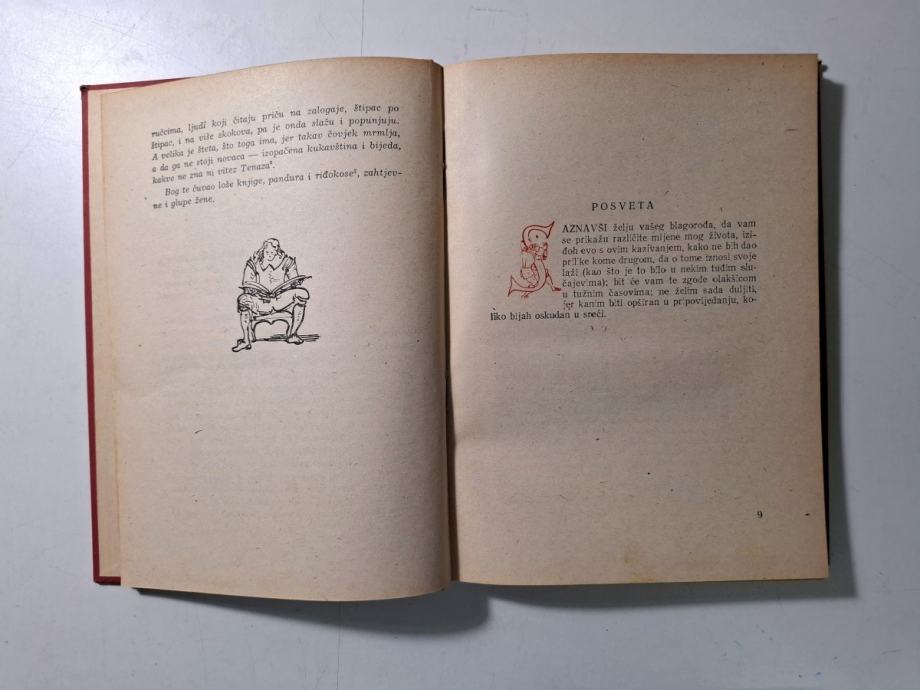 ručcima, ljudi koji čitaju priču na zalogaje, štipac po
štipac, i na više skokova, pa je onda slažu i popunjuju.
A velika je šteta, što toga ima, jer takav čovjek mrmlja,
a da ga ne stoji novaca — izopačena kukavština i bijeda,
kakve ne zna ni vitez Tenaza².
Bog te čuvao loše knjige, pandura i riđokose³, zahtjev-
ne i glupe žene.
POSVETA
SAZNAVŠI želju vašeg blagorođa, da vam
se prikažu različite mijene mog života, izi-
đoh evo s ovim kazivanjem, kako ne bih dao
prilike kome drugom, da o tome iznosi svoje
laži (kao što je to bilo u nekim tuđim slu-
čajevima); bit će vam te zgode olakšicom
u tužnim časovima; ne želim sada duljiti,
jer kanim biti opširan u pripovijedanju, ko-
liko bijah oskudan u sreći.
9